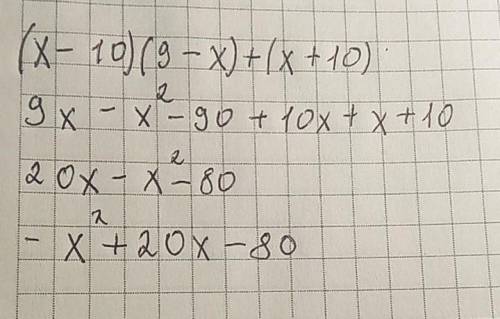 (x - 10)(9 - x) + (x + 10)
9x - x² - 90 + 10x + x + 10
20x - x² - 80
- x² + 20x - 80